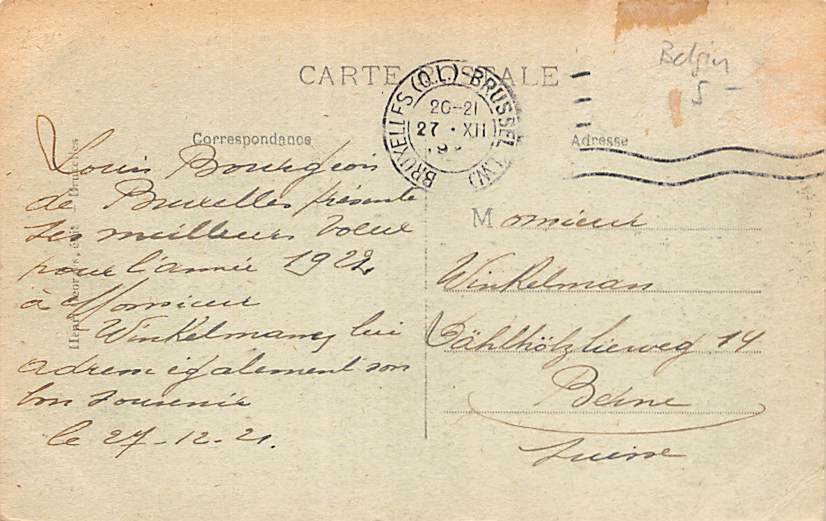 CARTE POSTALE
Belgien
5 -
BRUXELLES (Q.L.) BRUSSEL (L.W.)
20-21
27 · XII
Correspondance
Adresse
Louis Bourgeois
de Bruxelles présente
ses meilleurs voeux
pour l'année 1922
à Monsieur
Winkelman, lui
adresse également son
bon souvenir
le 27-12-21.
Monsieur
Winkelman
Dählhölzlieweg 14
Berne
Suisse
Henri Georges, édit. Bruxelles